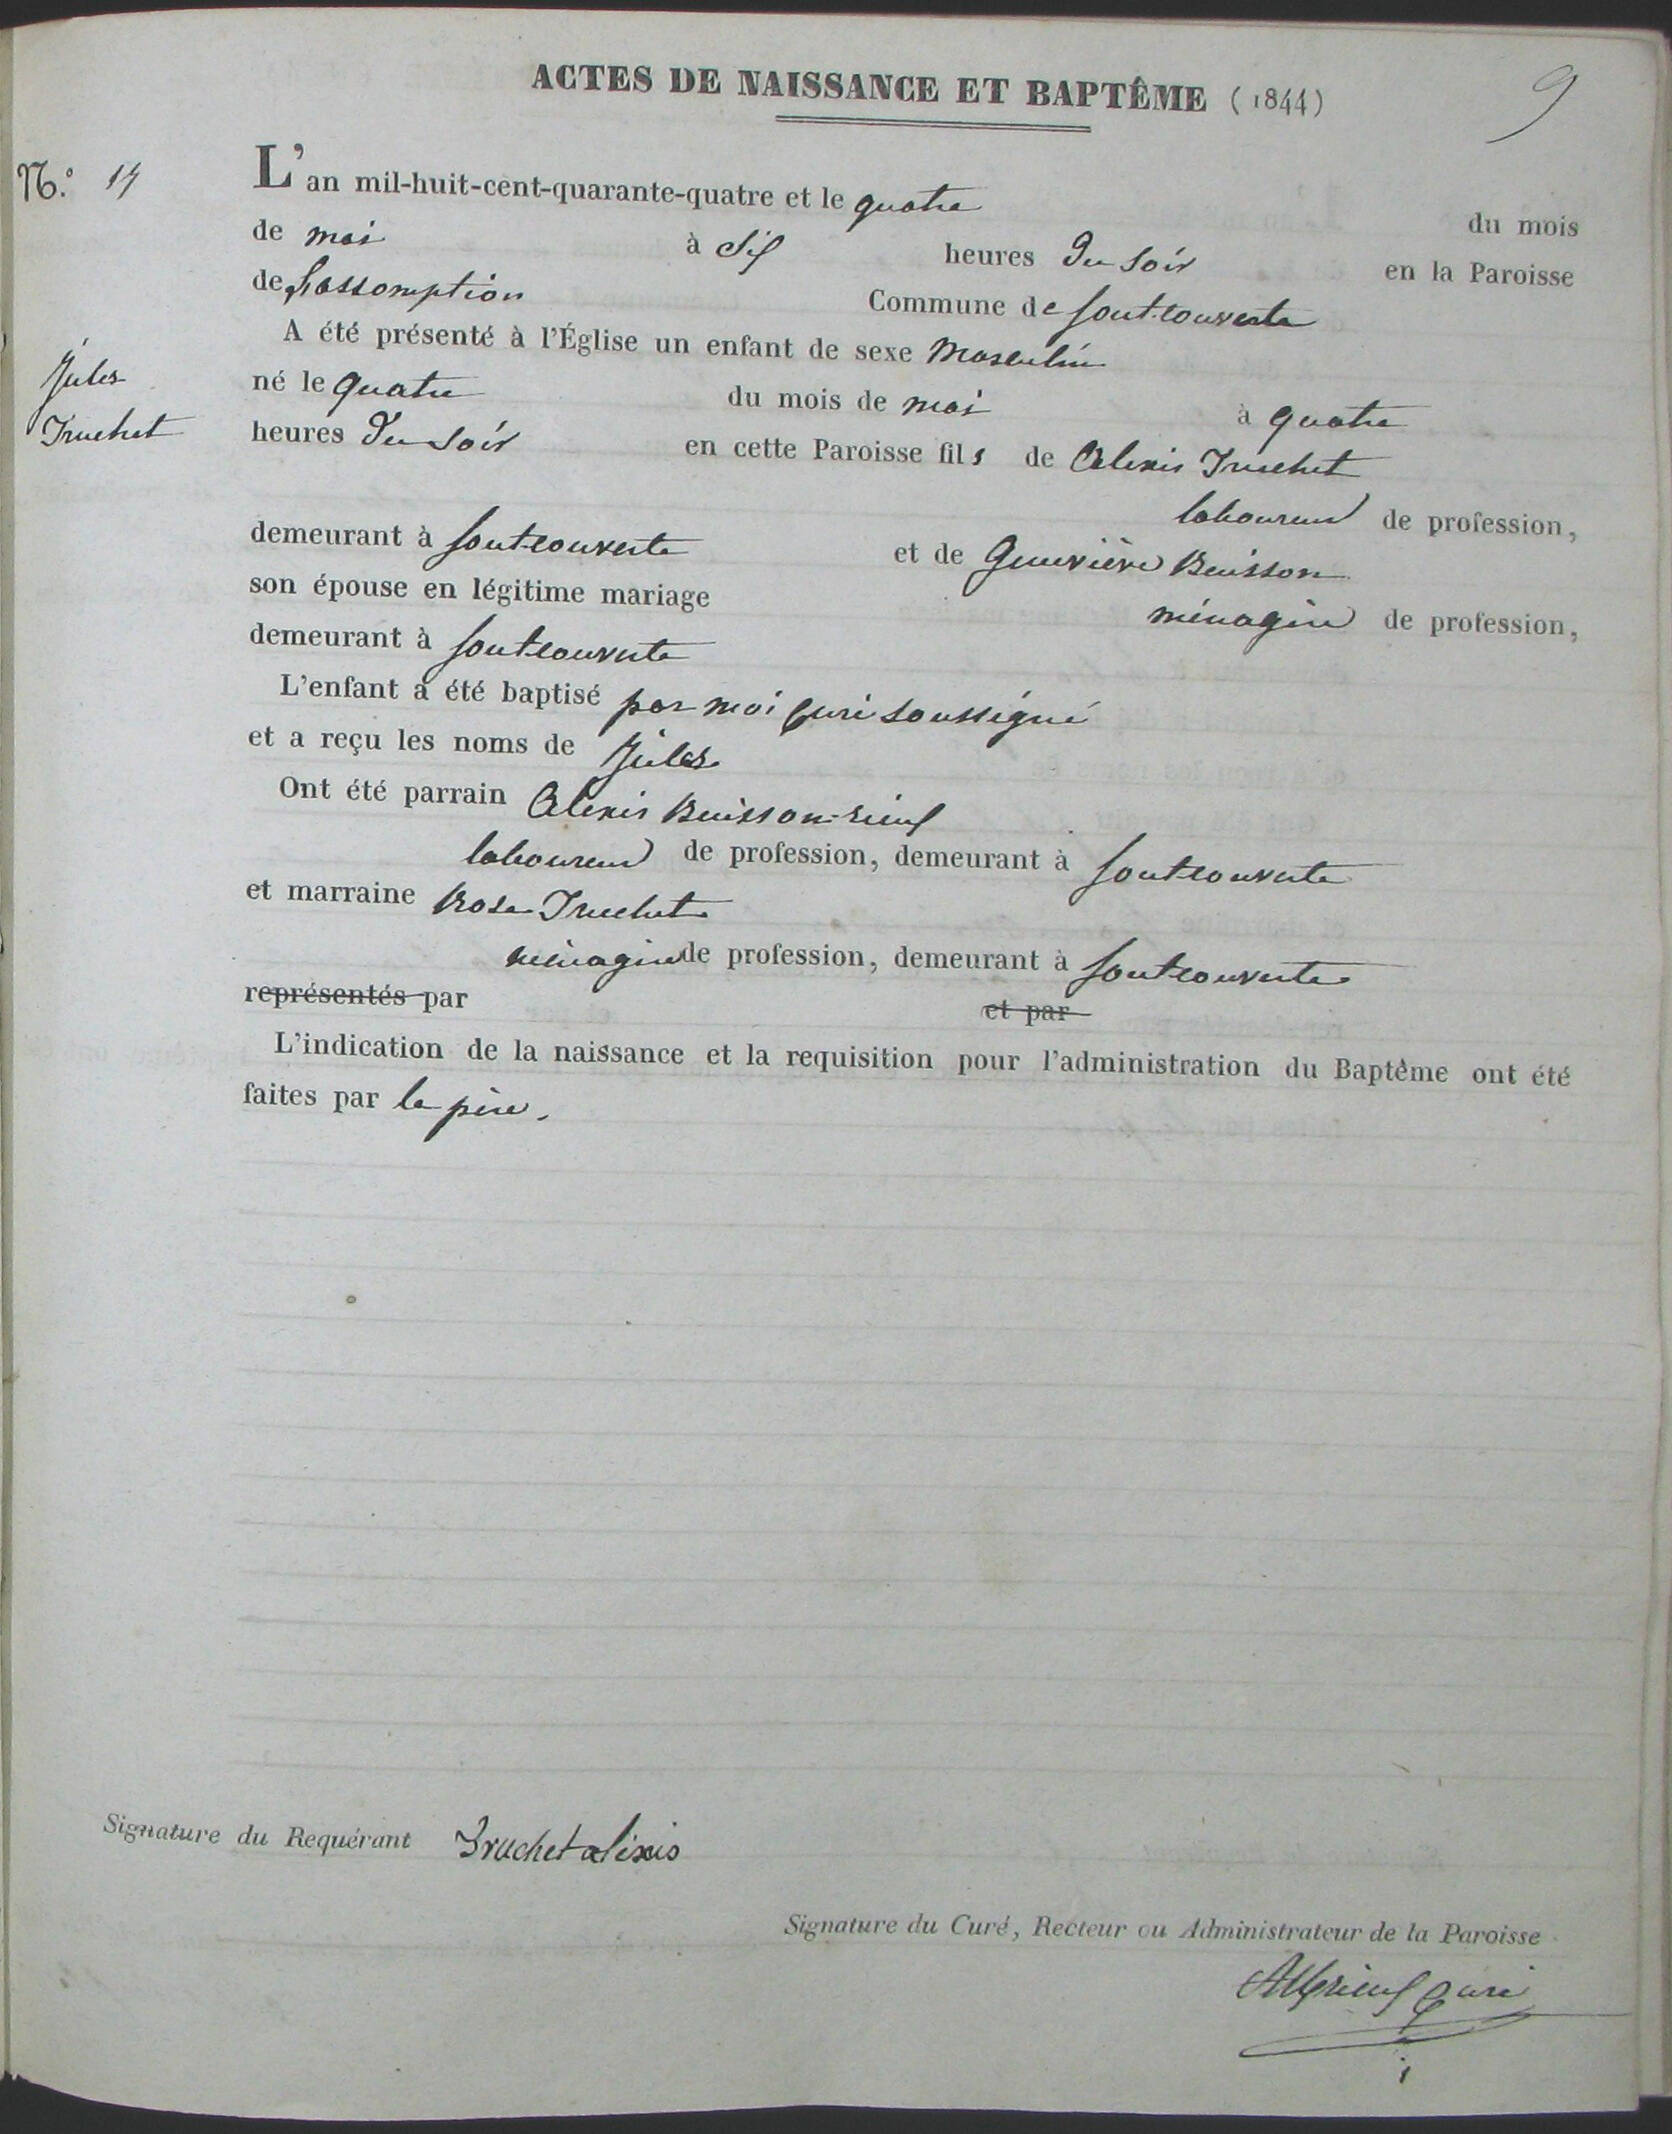 ACTES DE NAISSANCE ET BAPTÊME (1844)
9
N.o 14
L'an mil-huit-cent-quarante-quatre et le quatre du mois
de mai à six heures du soir en la Paroisse
de L'assomption Commune de fontcouverte
A été présenté à l'Église un enfant de sexe masculin
Jules
Truchet
né le quatre du mois de mai à quatre
heures du soir en cette Paroisse fils de Alexis Truchet
laboureur de profession,
demeurant à fontcouverte et de Geneviève Buisson
son épouse en légitime mariage ménagère de profession,
demeurant à fontcouverte
L'enfant a été baptisé par moi curé soussigné
et a reçu les noms de Jules
Ont été parrain Alexis Buisson-rieux
laboureur de profession, demeurant à fontcouverte
et marraine Rose Truchet
ménagère de profession, demeurant à fontcouverte
représentés par et par
L'indication de la naissance et la requisition pour l'administration du Baptême ont été
faites par le père.
Signature du Requérant Truchet alixis
Signature du Curé, Recteur ou Administrateur de la Paroisse
curé